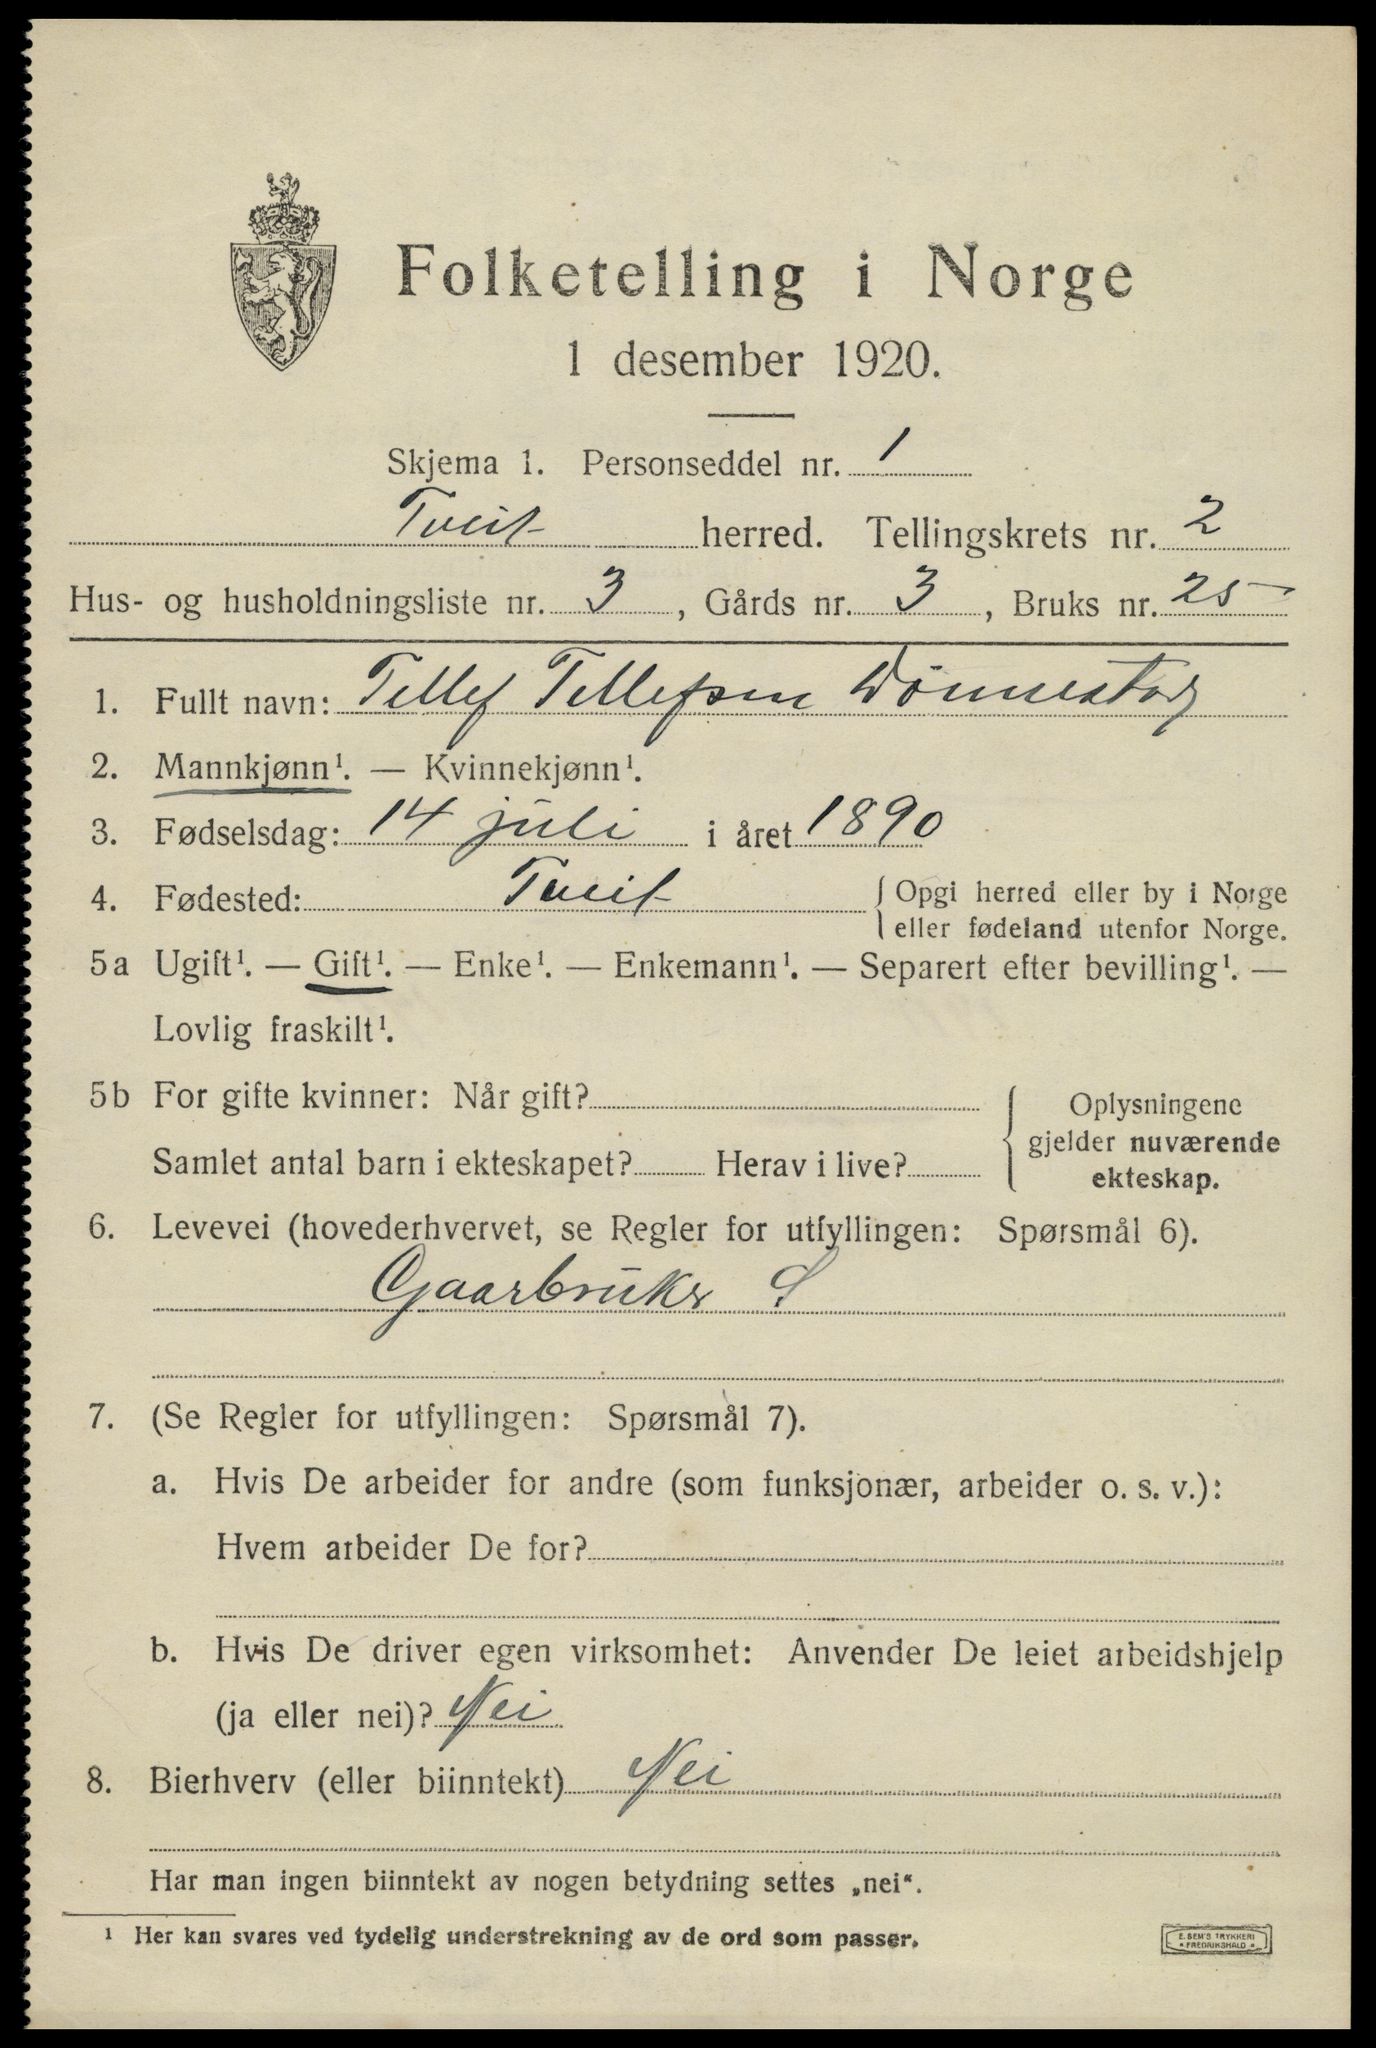 Folketelling i Norge
1 desember 1920.
Skjema 1. Personseddel nr. 1
Tveit herred. Tellingskrets nr. 2
Hus- og husholdningsliste nr. 3, Gårds nr. 3, Bruks nr. 25
1. Fullt navn: Tellef Tellefsen Dønnestad
2. Mannkjønn¹. — Kvinnekjønn¹.
3. Fødselsdag: 14 juli i året 1890
4. Fødested: Tveit { Opgi herred eller by i Norge
eller fødeland utenfor Norge.
5a Ugift¹. — Gift¹. — Enke¹. — Enkemann¹. — Separert efter bevilling¹. —
Lovlig fraskilt¹.
5b For gifte kvinner: Når gift?
Samlet antal barn i ekteskapet? Herav i live?
{ Oplysningene
gjelder nuværende
ekteskap.
6. Levevei (hovederhvervet, se Regler for utfyllingen: Spørsmål 6).
Gaarbruker S
7. (Se Regler for utfyllingen: Spørsmål 7).
a. Hvis De arbeider for andre (som funksjonær, arbeider o. s. v.):
Hvem arbeider De for?
b. Hvis De driver egen virksomhet: Anvender De leiet arbeidshjelp
(ja eller nei)? Nei
8. Bierhverv (eller biinntekt) Nei
Har man ingen biinntekt av nogen betydning settes „nei“.
¹ Her kan svares ved tydelig understrekning av de ord som passer.
E. SEM'S TRYKKERI
• FREDRIKSHALD •